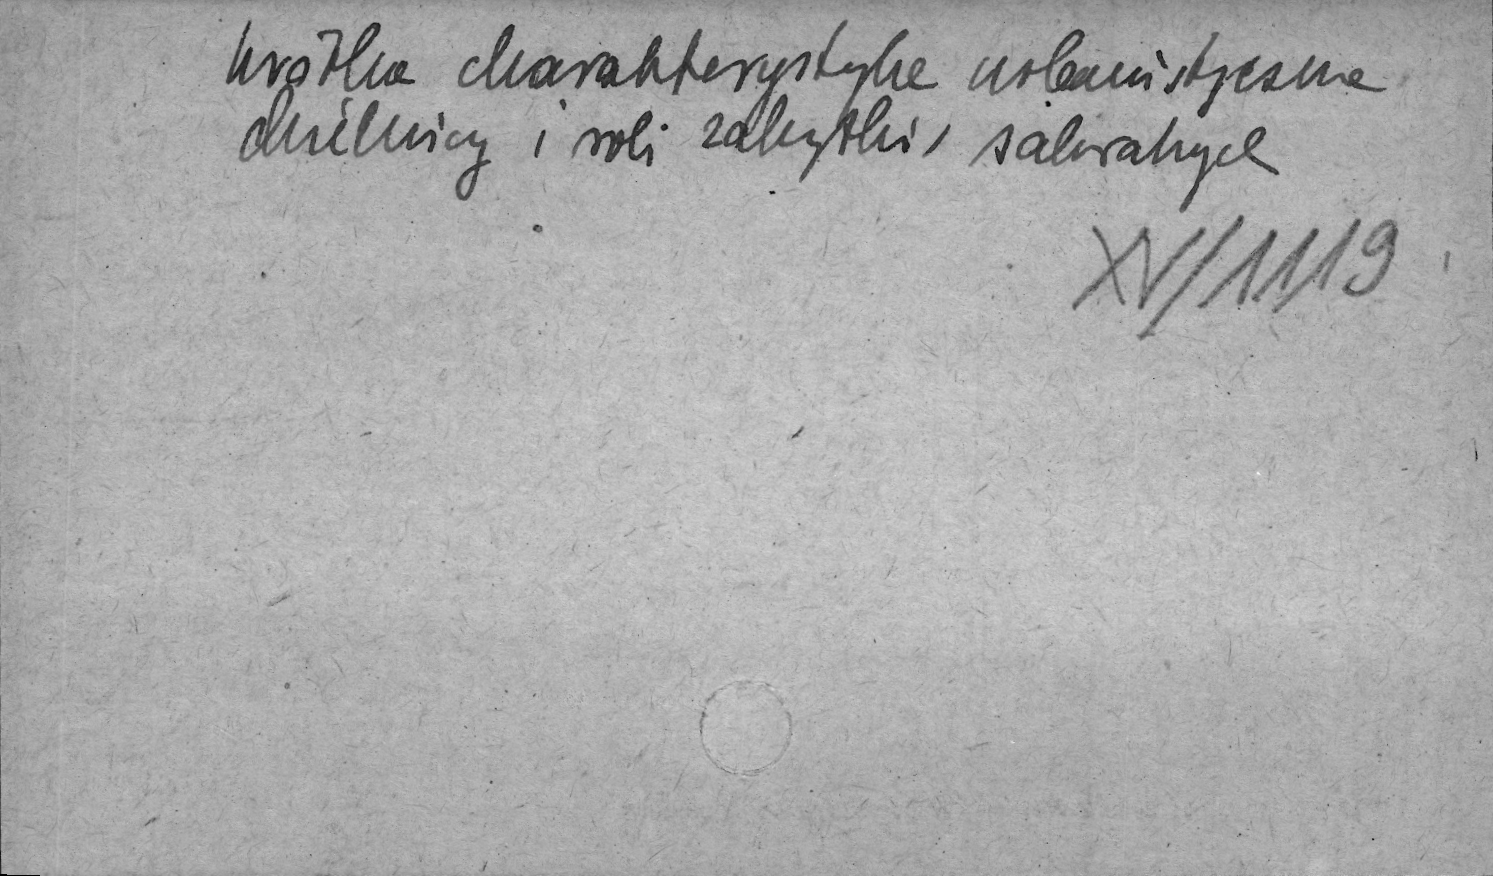 krótka charakterystyka urbanistyczna
dzielnicy i roli zabytków sakralnych
XV/1119